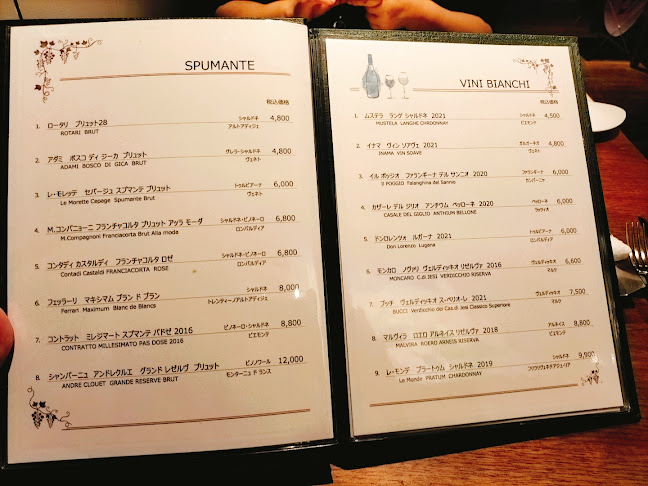 SPUMANTE
税込価格
1. ロータリ ブリュット28 シャルドネ 4,800
ROTARI BRUT アルトアディジェ
2. アダミ ボスコ ディ ジーカ ブリュット グレラ・シャルドネ 4,800
ADAMI BOSCO DI GICA BRUT ヴェネト
3. レ・モレッテ セパージュ スプマンテ ブリュット トゥルビアーナ 6,000
Le Morette Cepage Spumante Brut ヴェネト
4. M.コンパニョーニ フランチャコルタ ブリュット アッラ モーダ シャルドネ・ピノネーロ 6,800
M.Compagnoni Franciacorta Brut Alla moda ロンバルディア
5. コンタディ カスタルディ フランチャコルタ ロゼ シャルドネ・ピノネーロ 6,800
Contadi Castaldi FRANCIACORTA ROSE ロンバルディア
6. フェッラーリ マキシマム ブラン ド ブラン シャルドネ 8,000
Ferrari Maximum Blanc de Blancs トレンティーノアルトアディジェ
7. コントラット ミレジマート スプマンテ パドゼ 2016 ピノネーロ・シャルドネ 8,800
CONTRATTO MILLESIMATO PAS DOSE 2016 ピエモンテ
8. シャンパーニュ アンドレクルエ グランド レゼルヴ ブリュット ピノノワール 12,000
ANDRE CLOUET GRANDE RESERVE BRUT モンターニュ ド ランス
VINI BIANCHI
税込価格
1. ムステラ ラング シャルドネ 2021 シャルドネ 4,500
MUSTELA LANGHE CHRDONNAY ピエモンテ
2. イナマ ヴィン ソアヴェ 2021 ガルガーネガ 4,800
INAMA VIN SOAVE ヴェネト
3. イル ポッジオ ファランギーナ デル サンニオ 2020 ファランギーナ 6,000
Il POGGIO Falanghina del Sannio カンパーニャ
4. カザーレ デル ジリオ アンティウム ベッローネ 2020 ベッローネ 6,000
CASALE DEL GIGLIO ANTHIUM BELLONE ラツィオ
5. ドンロレンツォ ルガーナ 2021 トゥルビアーナ 6,000
Don Lorenzo Lugana ロンバルディア
6. モンカロ ノヴァリ ヴェルディッキオ リゼルヴァ 2016 ヴェルディッキオ 6,600
MONCARO C.di JESI VERDICCHIO RISERVA マルケ
7. ブッチ ヴェルディッキオ スペリオーレ 2021 ヴェルディッキオ 7,500
BUCCI Verdicchio dei Cas.di Jesi Classico Superiore マルケ
8. マルヴィラ ロエロ アルネイス リゼルヴァ 2018 アルネイス 8,800
MALVIRA ROERO ARNEIS RISERVA ピエモンテ
9. レ・モンデ プラートゥム シャルドネ 2019 シャルドネ 9,900
Le Monde PRATUM CHARDONNAY フリウリヴェネチアジューリア